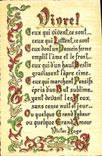 Vivre!
Ceux qui vivent, ce sont
ceux qui luttent, ce sont
Ceux dont un Dessein ferme
emplit l'âme et le front...
Ceux qui d'un haut Destin
gravissent l'âpre cime;
Ceux qui marchent Pensifs
épris d'un But sublime,
Ayant devant les Yeux,
sans cesse nuit et jour,
Ou quelque Grand labeur
ou quelque Grand Amour
Victor Hugo